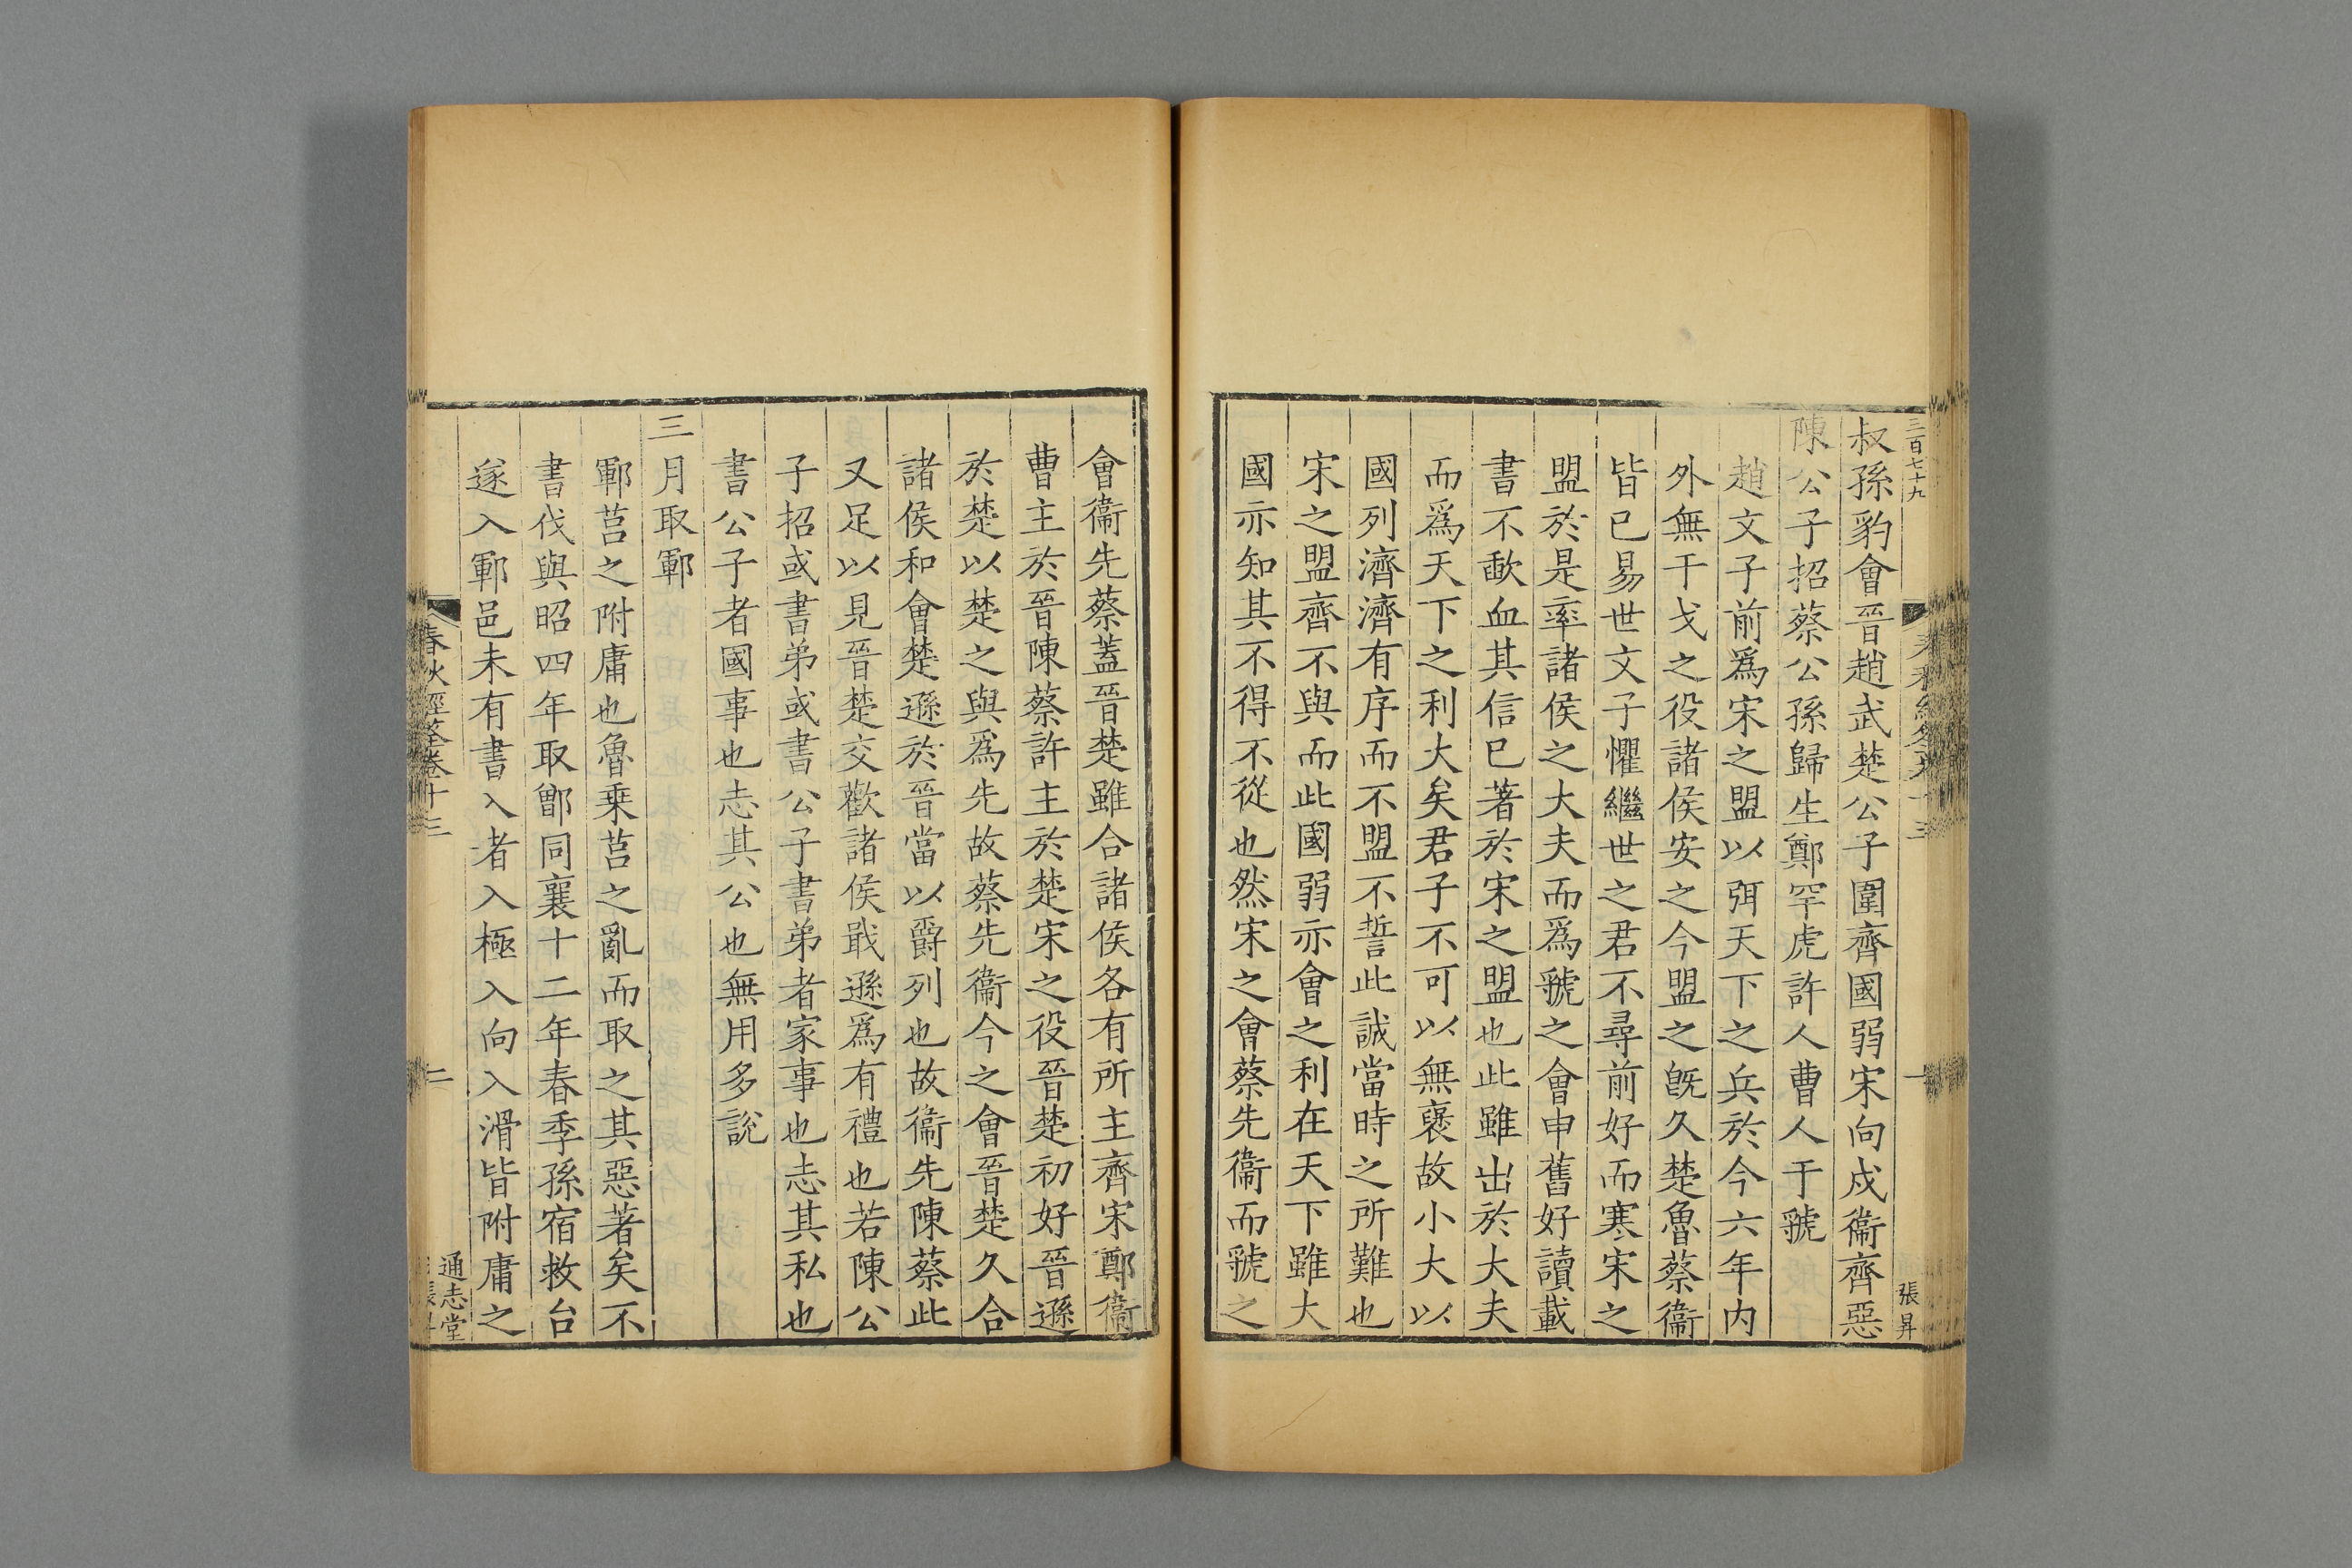 三百七十九
張昇
叔孫豹會晉趙武楚公子圍齊國弱宋向戍衞齊惡
陳公子招蔡公孫歸生鄭罕虎許人曹人于虢
趙文子前爲宋之盟以弭天下之兵於今六年内
外無干戈之役諸侯安之今盟之旣久楚魯蔡衞
皆已易世文子懼繼世之君不尋前好而寒宋之
盟於是率諸侯之大夫而爲虢之會申舊好讀載
書不歃血其信已著於宋之盟也此雖出於大夫
而爲天下之利大矣君子不可以無襃故小大以
國列濟濟有序而不盟不誓此誠當時之所難也
宋之盟齊不與而此國弱亦會之利在天下雖大
國亦知其不得不從也然宋之會蔡先衞而虢之
會衞先蔡蓋晉楚雖合諸侯各有所主齊宋鄭衞
曹主於晉陳蔡許主於楚宋之役晉楚初好晉遜
於楚以楚之與爲先故蔡先衞今之會晉楚久合
諸侯和會楚遜於晉當以爵列也故衞先陳蔡此
又足以見晉楚交歡諸侯戢遜爲有禮也若陳公
子招或書弟或書公子書弟者家事也志其私也
書公子者國事也志其公也無用多說
三月取鄆
鄆莒之附庸也魯乗莒之亂而取之其惡著矣不
書伐與昭四年取鄫同襄十二年春季孫宿救台
遂入鄆邑未有書入者入極入向入滑皆附庸之
春秋經筌卷十三
二
通志堂